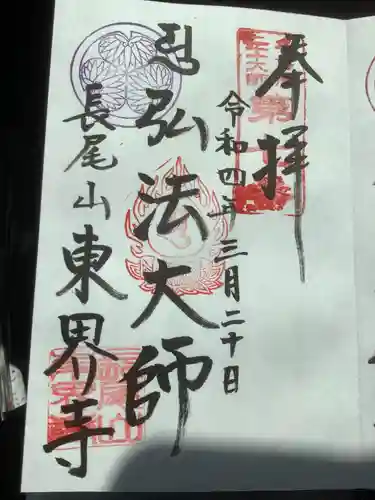 奉拝
令和四年三月二十日
弘法大師
長尾山
東界寺